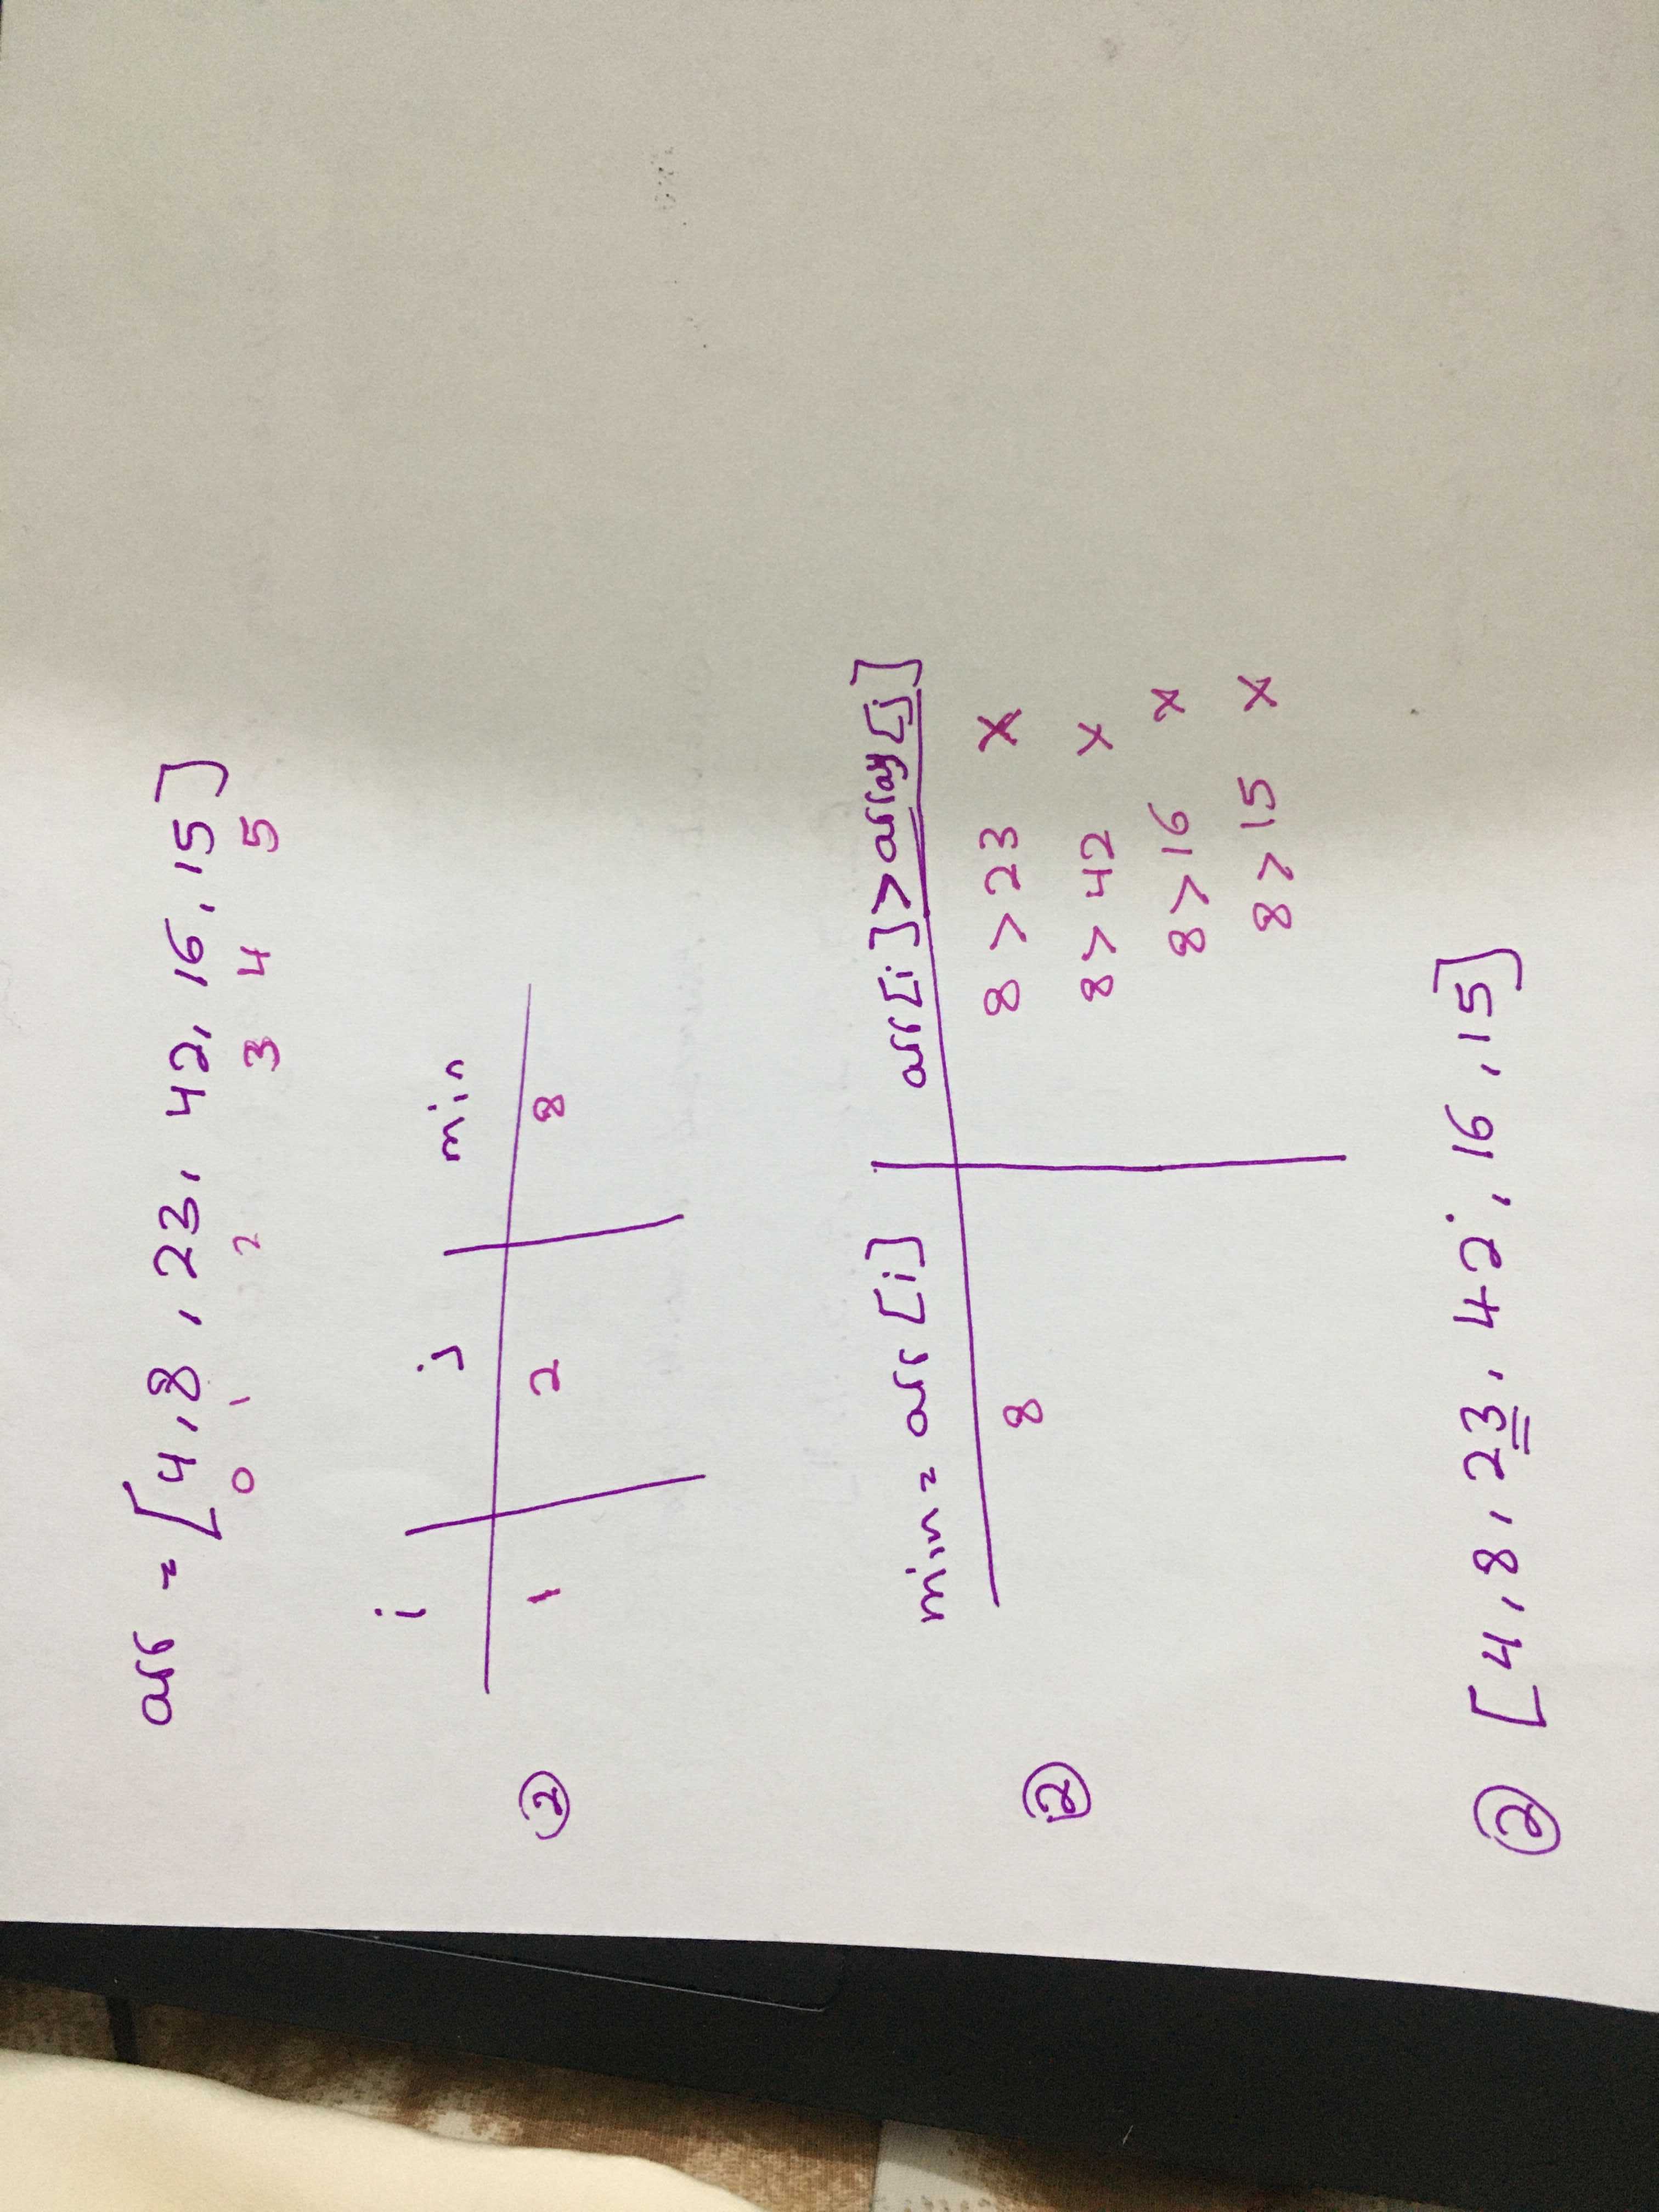 arr = [4, 8, 23, 42, 16, 15]
0 1 2 3 4 5
i j min
② 1 2 8
min = arr[i] arr[i] > array[j]
② 8 8 > 23 X
8 > 42 X
8 > 16 X
8 > 15 X
② [4, 8, 23, 42, 16, 15]